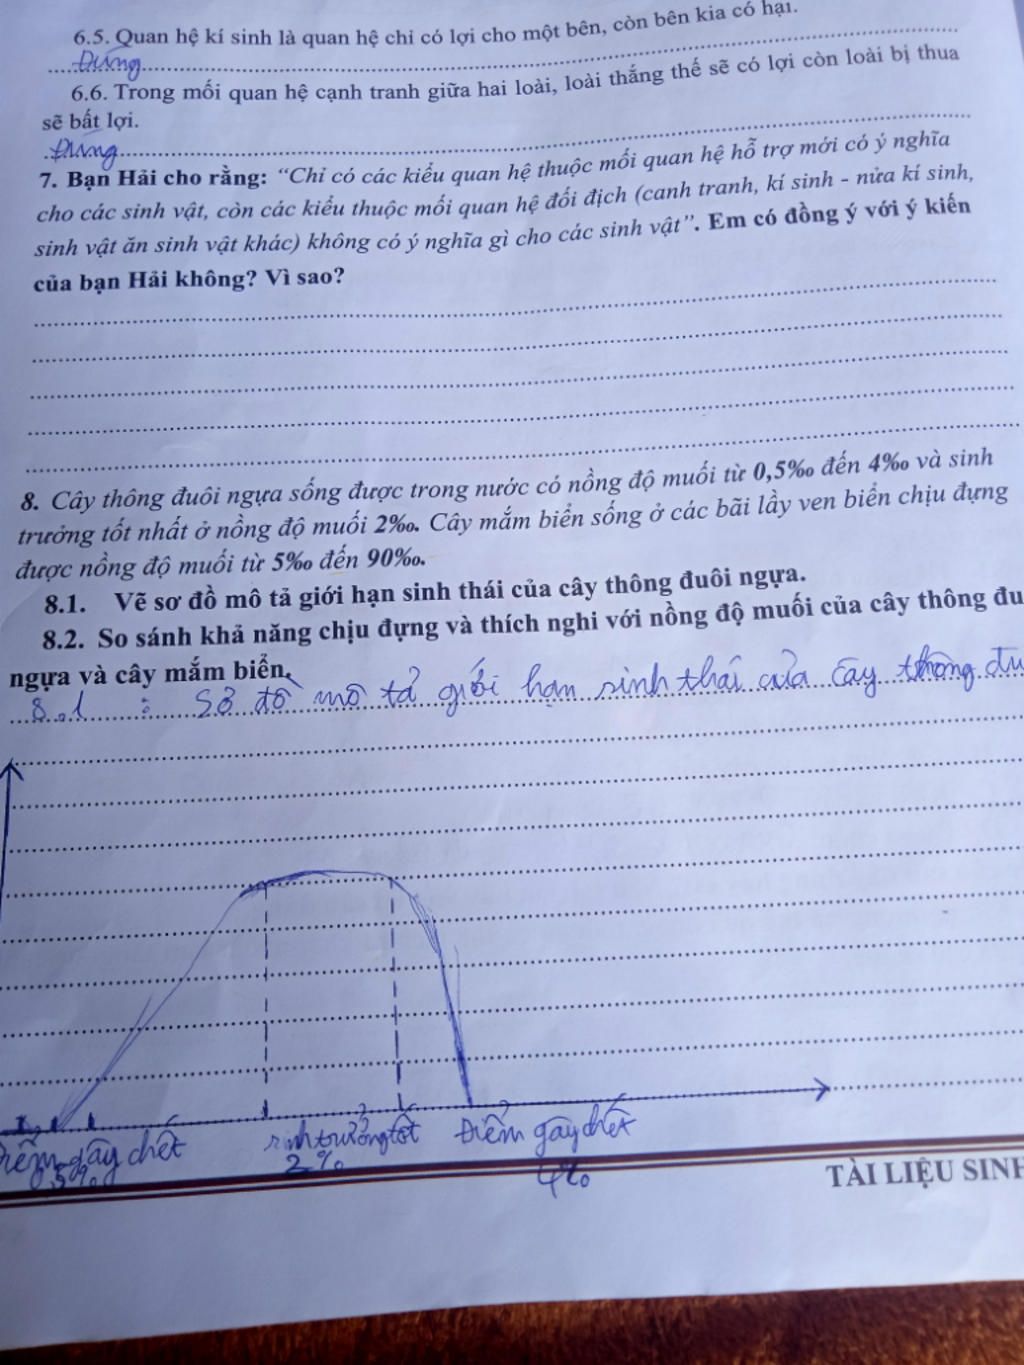 6.5. Quan hệ kí sinh là quan hệ chỉ có lợi cho một bên, còn bên kia có hại.
Đúng
6.6. Trong mối quan hệ cạnh tranh giữa hai loài, loài thắng thế sẽ có lợi còn loài bị thua
sẽ bất lợi.
Đúng
7. Bạn Hải cho rằng: “Chỉ có các kiểu quan hệ thuộc mối quan hệ hỗ trợ mới có ý nghĩa
cho các sinh vật, còn các kiểu thuộc mối quan hệ đối địch (canh tranh, kí sinh - nửa kí sinh,
sinh vật ăn sinh vật khác) không có ý nghĩa gì cho các sinh vật”. Em có đồng ý với ý kiến
của bạn Hải không? Vì sao?
8. Cây thông đuôi ngựa sống được trong nước có nồng độ muối từ 0,5‰ đến 4‰ và sinh
trưởng tốt nhất ở nồng độ muối 2‰. Cây mắm biển sống ở các bãi lầy ven biển chịu đựng
được nồng độ muối từ 5‰ đến 90‰.
8.1. Vẽ sơ đồ mô tả giới hạn sinh thái của cây thông đuôi ngựa.
8.2. So sánh khả năng chịu đựng và thích nghi với nồng độ muối của cây thông đu
ngựa và cây mắm biển.
8.1 : Sơ đồ mô tả giới hạn sinh thái của cây thông đu
gây chết sinh trưởng tốt Điểm gây chết
TÀI LIỆU SINH